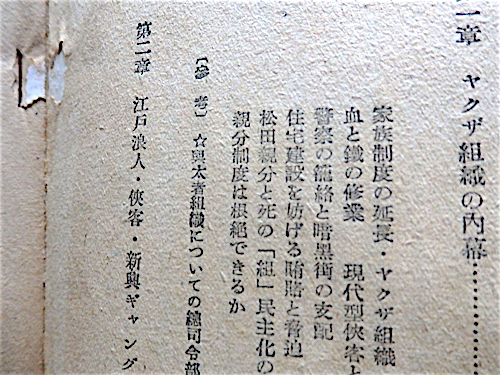 一章　ヤクザ組織の内幕…………
家族制度の延長・ヤクザ組織
血と鐵の修業　現代型俠客と
警察の籠絡と暗黒街の支配
住宅建設を妨げる賄賂と脅迫
松田親分と死の「組」民主化の
親分制度は根絶できるか
〔參考〕☆與太者組織についての總司令部
第二章　江戸浪人・俠客・新興ギャング